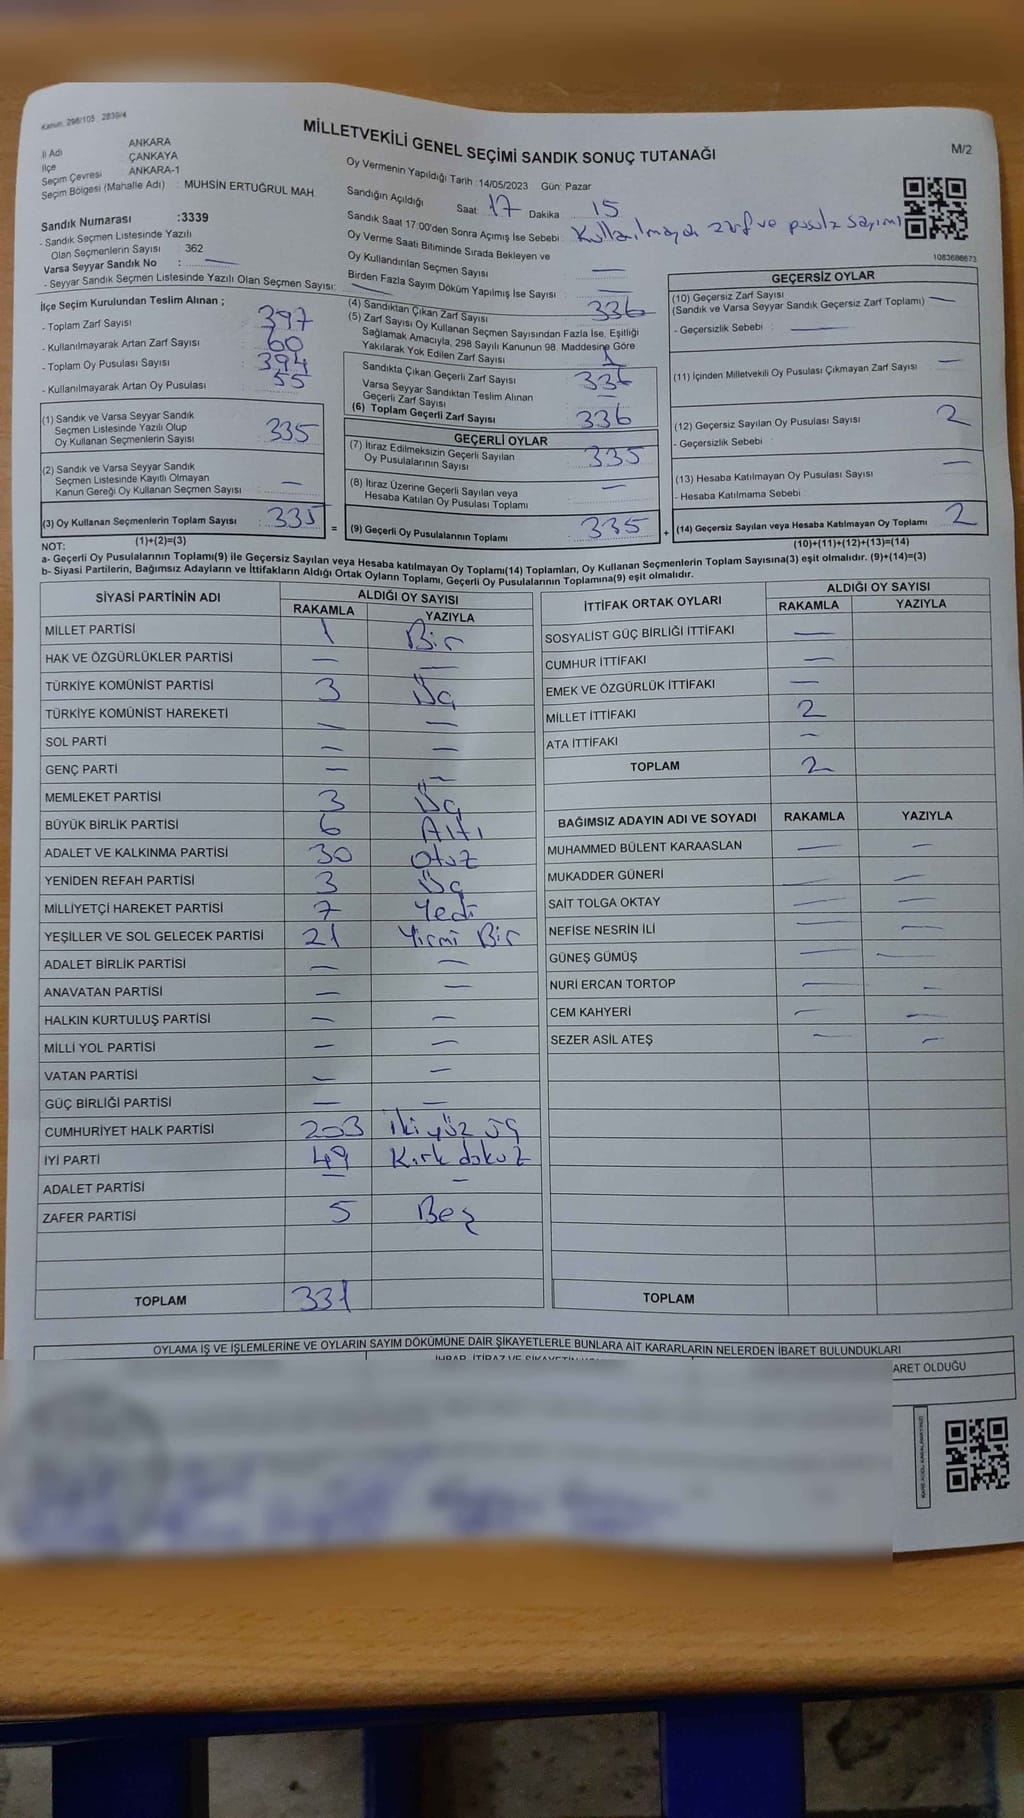 Kanun: 298/105 2839/4
MİLLETVEKİLİ GENEL SEÇİMİ SANDIK SONUÇ TUTANAĞI
M/2
İl Adı ANKARA
İlçe ÇANKAYA
Seçim Çevresi ANKARA-1
Seçim Bölgesi (Mahalle Adı) : MUHSİN ERTUĞRUL MAH
Sandık Numarası :3339
- Sandık Seçmen Listesinde Yazılı
Olan Seçmenlerin Sayısı : 362
Varsa Seyyar Sandık No : —
- Seyyar Sandık Seçmen Listesinde Yazılı Olan Seçmen Sayısı: —
Oy Vermenin Yapıldığı Tarih :14/05/2023 Gün: Pazar
Sandığın Açıldığı Saat: 17 Dakika 15
Sandık Saat 17:00'den Sonra Açımış İse Sebebi : Kullanılmayan zarf ve pusula sayımı
Oy Verme Saati Bitiminde Sırada Bekleyen ve
Oy Kullandırılan Seçmen Sayısı —
Birden Fazla Sayım Döküm Yapılmış İse Sayısı —
1083686673
İlçe Seçim Kurulundan Teslim Alınan ;
- Toplam Zarf Sayısı 397
- Kullanılmayarak Artan Zarf Sayısı 60
- Toplam Oy Pusulası Sayısı 394
- Kullanılmayarak Artan Oy Pusulası 55
(1) Sandık ve Varsa Seyyar Sandık
Seçmen Listesinde Yazılı Olup
Oy Kullanan Seçmenlerin Sayısı 335
(2) Sandık ve Varsa Seyyar Sandık
Seçmen Listesinde Kayıtlı Olmayan
Kanun Gereği Oy Kullanan Seçmen Sayısı —
(3) Oy Kullanan Seçmenlerin Toplam Sayısı 335 =
(1)+(2)=(3)
(4) Sandıktan Çıkan Zarf Sayısı 336
(5) Zarf Sayısı Oy Kullanan Seçmen Sayısından Fazla İse, Eşitliği
Sağlamak Amacıyla, 298 Sayılı Kanunun 98. Maddesine Göre
Yakılarak Yok Edilen Zarf Sayısı 1
Sandıkta Çıkan Geçerli Zarf Sayısı 336
Varsa Seyyar Sandıktan Teslim Alınan
Geçerli Zarf Sayısı —
(6) Toplam Geçerli Zarf Sayısı 336
GEÇERLİ OYLAR
(7) İtiraz Edilmeksizin Geçerli Sayılan
Oy Pusulalarının Sayısı 335
(8) İtiraz Üzerine Geçerli Sayılan veya
Hesaba Katılan Oy Pusulası Toplamı —
(9) Geçerli Oy Pusulalarının Toplamı 335 +
GEÇERSİZ OYLAR
(10) Geçersiz Zarf Sayısı
(Sandık ve Varsa Seyyar Sandık Geçersiz Zarf Toplamı) —
- Geçersizlik Sebebi : —
(11) İçinden Milletvekili Oy Pusulası Çıkmayan Zarf Sayısı —
(12) Geçersiz Sayılan Oy Pusulası Sayısı 2
- Geçersizlik Sebebi :
(13) Hesaba Katılmayan Oy Pusulası Sayısı —
- Hesaba Katılmama Sebebi :
(14) Geçersiz Sayılan veya Hesaba Katılmayan Oy Toplamı 2
(10)+(11)+(12)+(13)=(14)
NOT:
a- Geçerli Oy Pusulalarının Toplamı(9) ile Geçersiz Sayılan veya Hesaba katılmayan Oy Toplamı(14) Toplamları, Oy Kullanan Seçmenlerin Toplam Sayısına(3) eşit olmalıdır. (9)+(14)=(3)
b- Siyasi Partilerin, Bağımsız Adayların ve İttifakların Aldığı Ortak Oyların Toplamı, Geçerli Oy Pusulalarının Toplamına(9) eşit olmalıdır.
SİYASİ PARTİNİN ADI ALDIĞI OY SAYISI
RAKAMLA YAZIYLA
MİLLET PARTİSİ 1 Bir
HAK VE ÖZGÜRLÜKLER PARTİSİ — —
TÜRKİYE KOMÜNİST PARTİSİ 3 Üç
TÜRKİYE KOMÜNİST HAREKETİ — —
SOL PARTİ — —
GENÇ PARTİ — —
MEMLEKET PARTİSİ 3 Üç
BÜYÜK BİRLİK PARTİSİ 6 Altı
ADALET VE KALKINMA PARTİSİ 30 Otuz
YENİDEN REFAH PARTİSİ 3 Üç
MİLLİYETÇİ HAREKET PARTİSİ 7 Yedi
YEŞİLLER VE SOL GELECEK PARTİSİ 21 Yirmi Bir
ADALET BİRLİK PARTİSİ — —
ANAVATAN PARTİSİ — —
HALKIN KURTULUŞ PARTİSİ — —
MİLLİ YOL PARTİSİ — —
VATAN PARTİSİ — —
GÜÇ BİRLİĞİ PARTİSİ — —
CUMHURİYET HALK PARTİSİ 203 ikiyüz üç
İYİ PARTİ 49 Kırk dokuz
ADALET PARTİSİ — —
ZAFER PARTİSİ 5 Beş
TOPLAM 331
İTTİFAK ORTAK OYLARI ALDIĞI OY SAYISI
RAKAMLA YAZIYLA
SOSYALİST GÜÇ BİRLİĞİ İTTİFAKI —
CUMHUR İTTİFAKI —
EMEK VE ÖZGÜRLÜK İTTİFAKI —
MİLLET İTTİFAKI 2
ATA İTTİFAKI —
TOPLAM 2
BAĞIMSIZ ADAYIN ADI VE SOYADI RAKAMLA YAZIYLA
MUHAMMED BÜLENT KARAASLAN — —
MUKADDER GÜNERİ — —
SAİT TOLGA OKTAY — —
NEFİSE NESRİN İLİ — —
GÜNEŞ GÜMÜŞ — —
NURİ ERCAN TORTOP — —
CEM KAHYERİ — —
SEZER ASİL ATEŞ — —
TOPLAM
OYLAMA İŞ VE İŞLEMLERİNE VE OYLARIN SAYIM DÖKÜMÜNE DAİR ŞİKAYETLERLE BUNLARA AİT KARARLARIN NELERDEN İBARET BULUNDUKLARI
ARET OLDUĞU